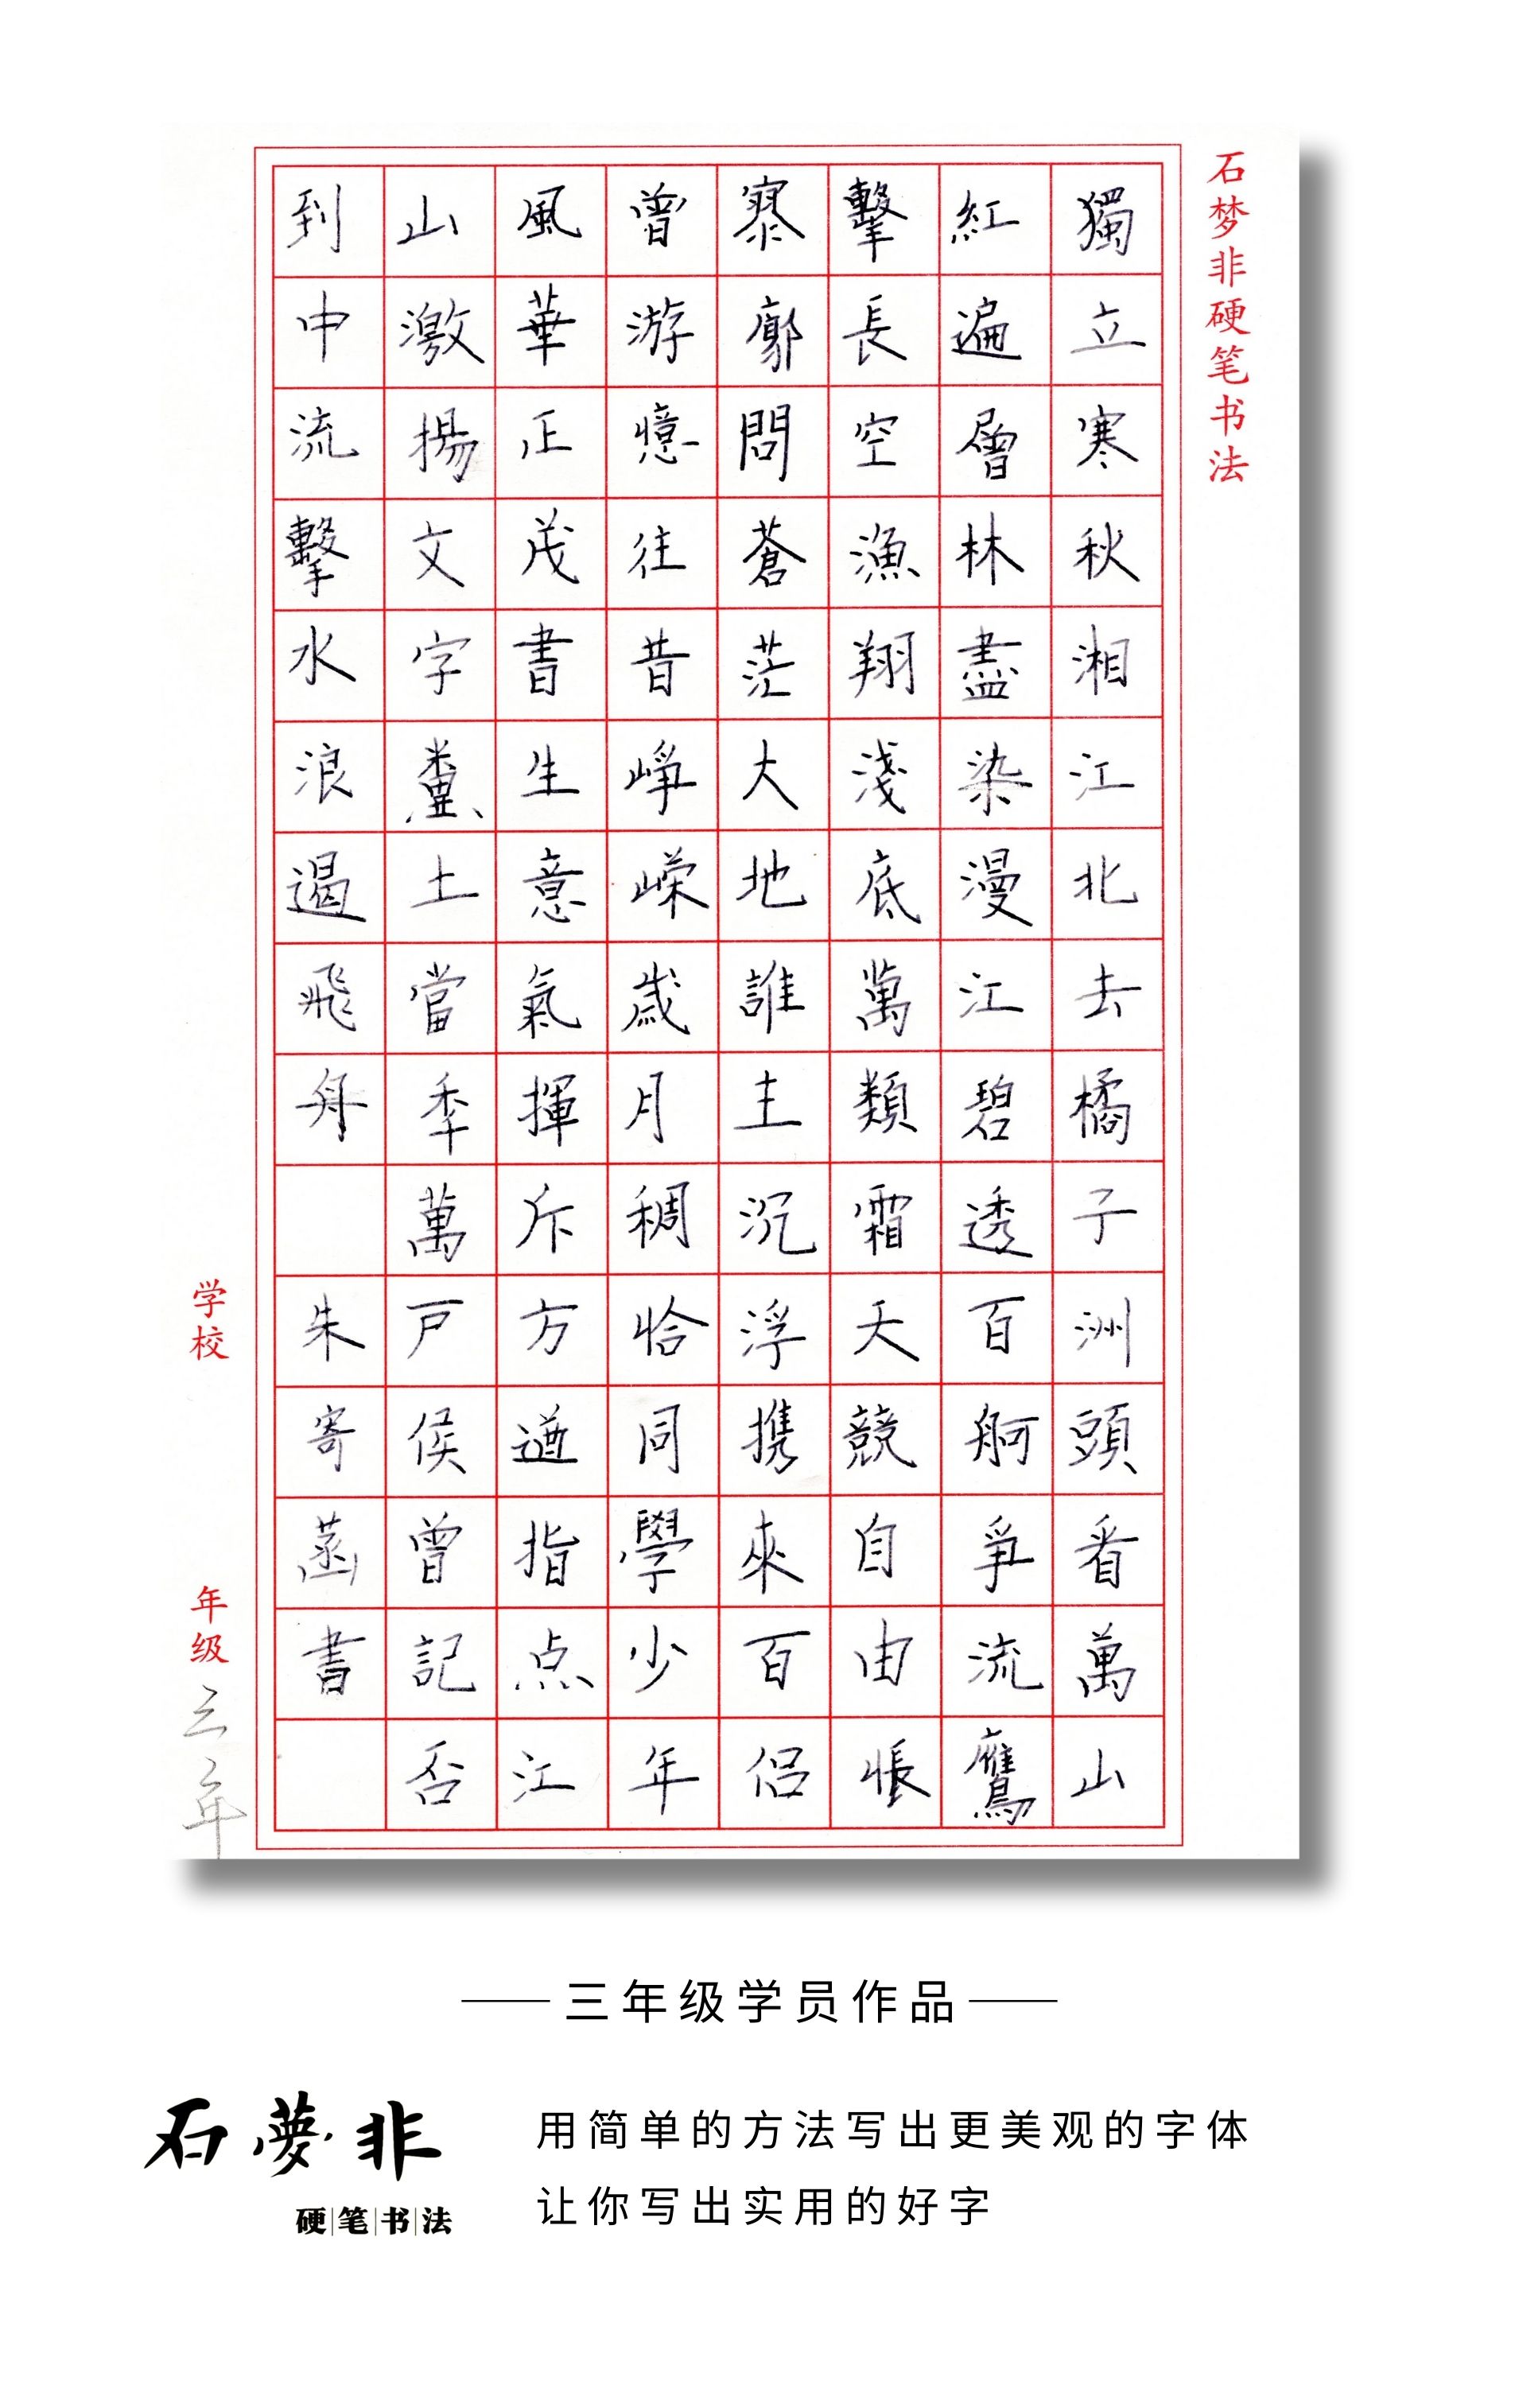 石梦非硬笔书法
獨立寒秋湘江北去橘子洲頭看萬山
紅遍層林盡染漫江碧透百舸爭流鷹
擊長空漁翔淺底萬類霜天競自由悵
寥廓問蒼茫大地誰主沉浮携來百侶
曾游憶往昔崢嶸歲月稠恰同學少年
風華正茂書生意氣揮斥方遒指点江
山激揚文字糞土當年萬戶侯曾記否
到中流擊水浪遏飛舟 朱寄 書
学校
年级 三年
三年级学员作品
石夢非
硬笔书法
用简单的方法写出更美观的字体
让你写出实用的好字